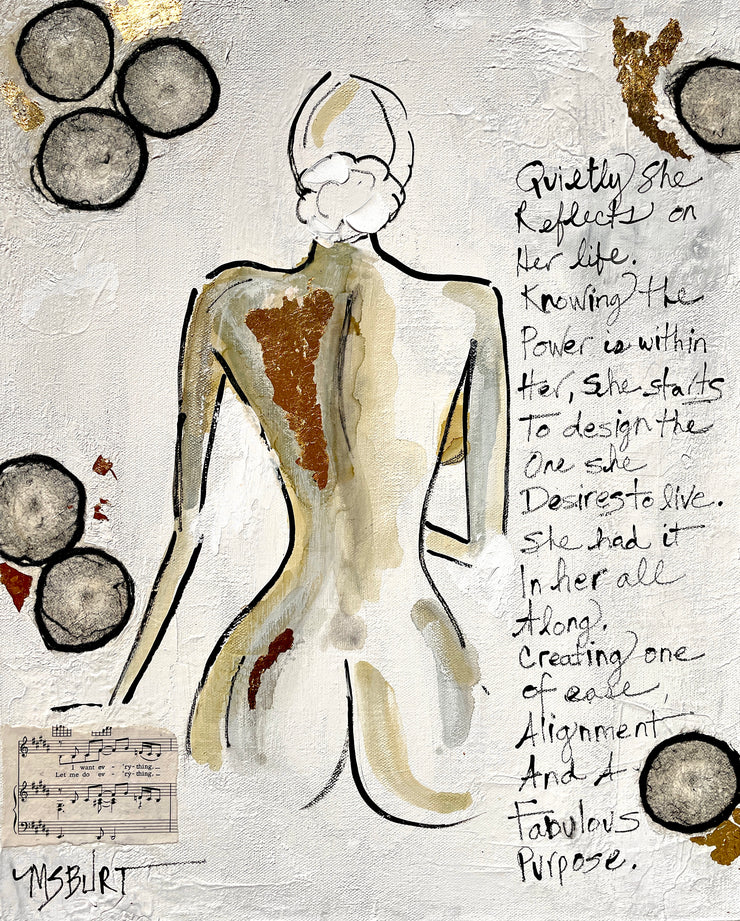 Quietly She
Reflects on
Her life.
Knowing the
Power is within
Her, She starts
To design the
One she
Desires to live.
She had it
In her all
Along.
Creating one
of ease,
Alignment
And A
Fabulous
Purpose.
I want ev - 'ry-thing.
Let me do ev - 'ry-thing.
MSBURT